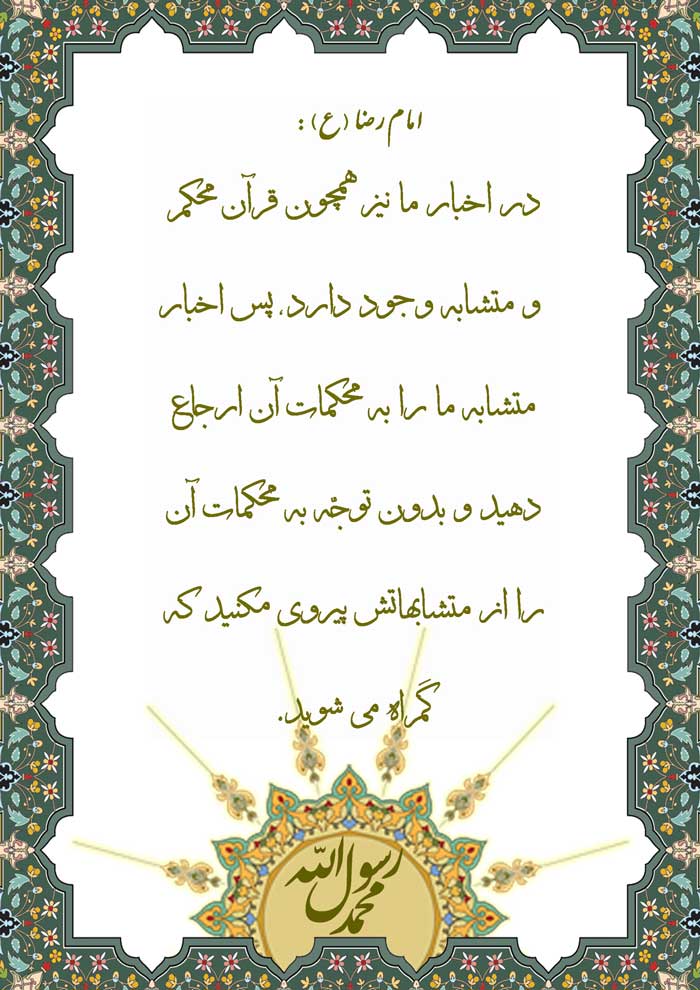 امام رضا (ع) :
در اخبار ما نیز همچون قرآن محکم
و متشابه وجود دارد، پس اخبار
متشابه ما را به محکمات آن ارجاع
دهید و بدون توجّه به محکمات آن
را از متشابهاتش پیروی مکنید که
گمراه می شوید.
محمد رسول الله